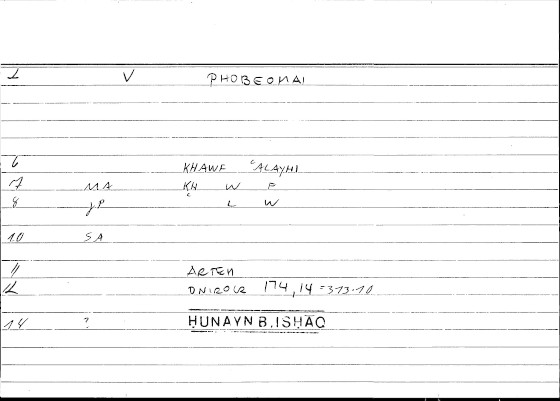 1 V PHOBEOMAI
6 KHAWF ʿALAYHI
7 MA KH W F
8 JP ʿ L W
10 SA
11 ARTEM
12 ONIROCR 174,14 =313.10
14 ? HUNAYN B. ISHAQ